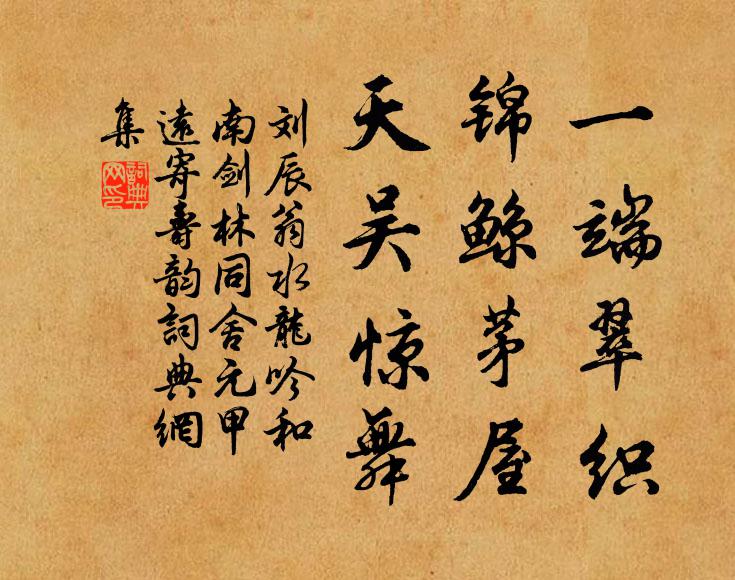 一端翠织
锦鲸茅屋
天吴惊舞
刘辰翁水龍吟和
南剑林同舍元甲
遠寄壽韵詞典網
集
詞典
网印